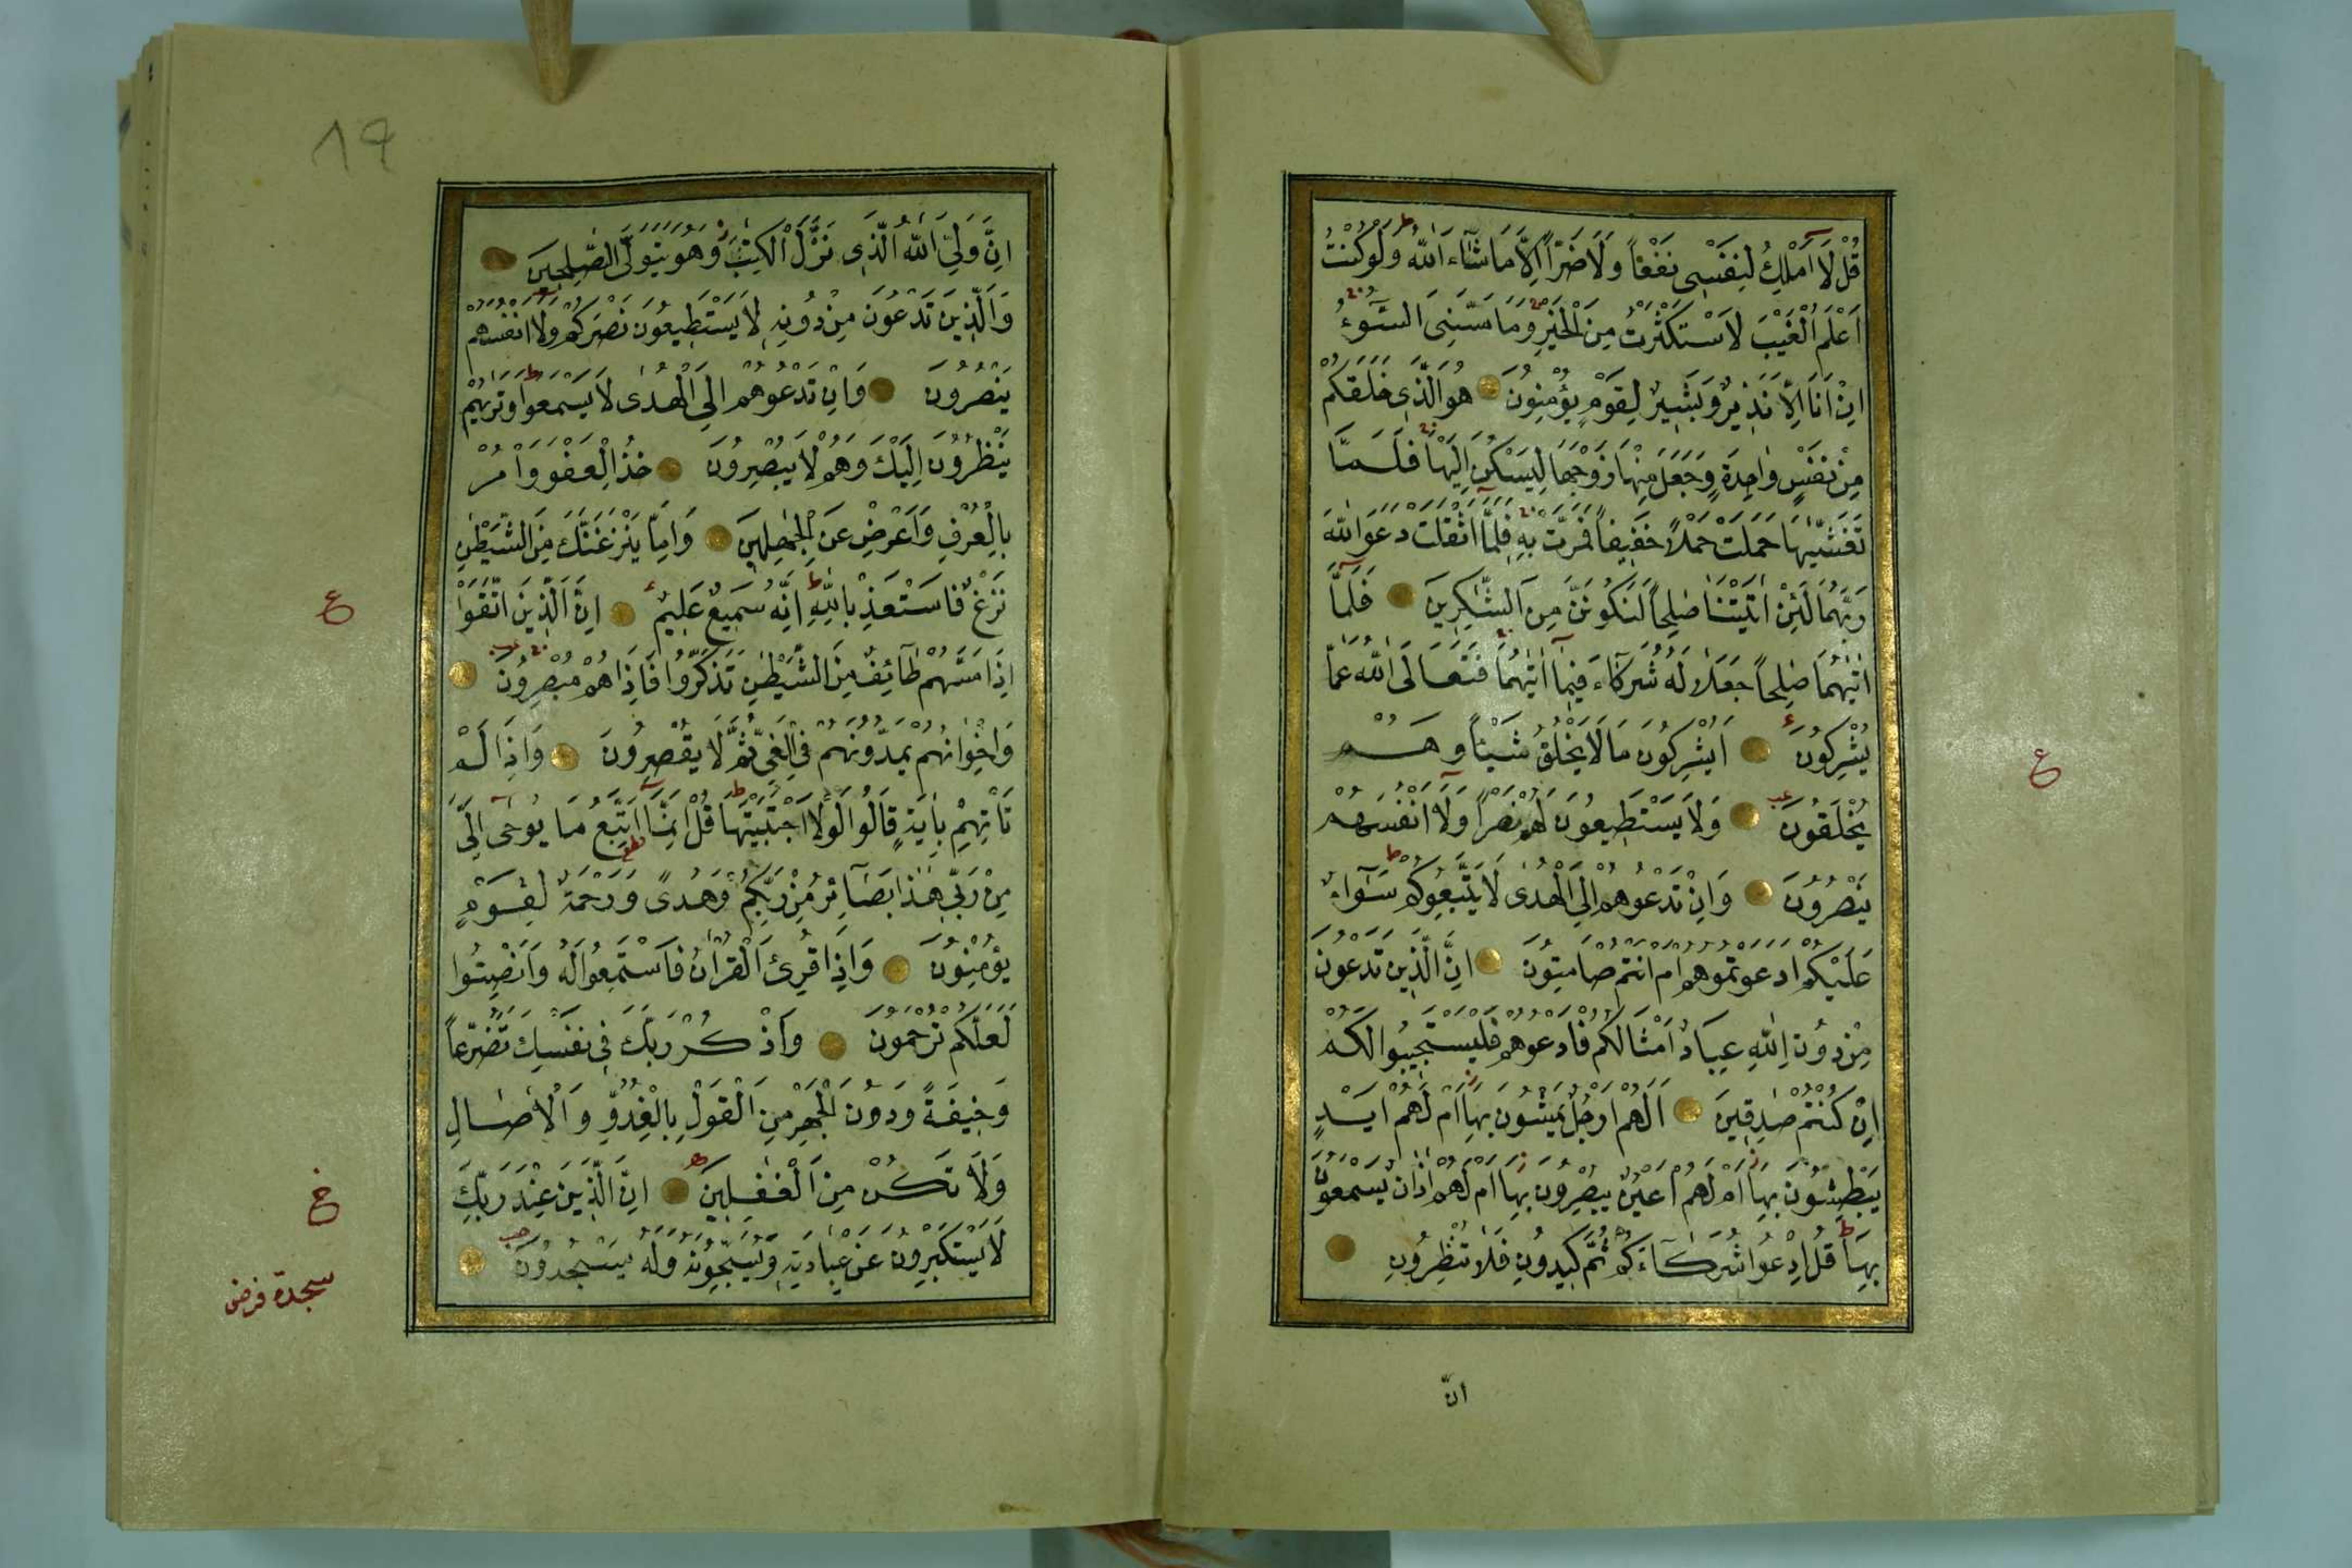 قُلْ لَا اَمْلِكُ لِنَفْسِى نَفْعًا وَلَا ضَرًّا اِلَّا مَا شَآءَ اللّٰهُ وَلَوْ كُنْتُ
اَعْلَمُ الْغَيْبَ لَاسْتَكْثَرْتُ مِنَ الْخَيْرِ وَمَا مَسَّنِىَ السُّوٓءُ
اِنْ اَنَا اِلَّا نَذِيرٌ وَبَشِيرٌ لِقَوْمٍ يُؤْمِنُونَ هُوَ الَّذِى خَلَقَكُمْ
مِنْ نَفْسٍ وَاحِدَةٍ وَجَعَلَ مِنْهَا زَوْجَهَا لِيَسْكُنَ اِلَيْهَا فَلَمَّا
تَغَشّٰيهَا حَمَلَتْ حَمْلًا خَفِيفًا فَمَرَّتْ بِهِ فَلَمَّا اَثْقَلَتْ دَعَوَا اللّٰهَ
رَبَّهُمَا لَئِنْ اٰتَيْتَنَا صَالِحًا لَنَكُونَنَّ مِنَ الشَّاكِرِينَ فَلَمَّا
اٰتٰيهُمَا صَالِحًا جَعَلَا لَهُ شُرَكَآءَ فِيمَآ اٰتٰيهُمَا فَتَعَالَى اللّٰهُ عَمَّا
يُشْرِكُونَ اَيُشْرِكُونَ مَا لَا يَخْلُقُ شَيْئًا وَهُمْ
يُخْلَقُونَ وَلَا يَسْتَطِيعُونَ لَهُمْ نَصْرًا وَلَآ اَنْفُسَهُمْ
يَنْصُرُونَ وَاِنْ تَدْعُوهُمْ اِلَى الْهُدٰى لَا يَتَّبِعُوكُمْ سَوَآءٌ
عَلَيْكُمْ اَدَعَوْتُمُوهُمْ اَمْ اَنْتُمْ صَامِتُونَ اِنَّ الَّذِينَ تَدْعُونَ
مِنْ دُونِ اللّٰهِ عِبَادٌ اَمْثَالُكُمْ فَادْعُوهُمْ فَلْيَسْتَجِيبُوا لَكُمْ
اِنْ كُنْتُمْ صَادِقِينَ اَلَهُمْ اَرْجُلٌ يَمْشُونَ بِهَا اَمْ لَهُمْ اَيْدٍ
يَبْطِشُونَ بِهَا اَمْ لَهُمْ اَعْيُنٌ يُبْصِرُونَ بِهَا اَمْ لَهُمْ اٰذَانٌ يَسْمَعُونَ
بِهَا قُلِ ادْعُوا شُرَكَآءَكُمْ ثُمَّ كِيدُونِ فَلَا تُنْظِرُونِ
انّ
ع
١٩
اِنَّ وَلِيِّىَ اللّٰهُ الَّذِى نَزَّلَ الْكِتَابَ وَهُوَ يَتَوَلَّى الصَّالِحِينَ
وَالَّذِينَ تَدْعُونَ مِنْ دُونِهِ لَا يَسْتَطِيعُونَ نَصْرَكُمْ وَلَا اَنْفُسَهُمْ
يَنْصُرُونَ وَاِنْ تَدْعُوهُمْ اِلَى الْهُدٰى لَا يَسْمَعُوا وَتَرٰيهُمْ
يَنْظُرُونَ اِلَيْكَ وَهُمْ لَا يُبْصِرُونَ خُذِ الْعَفْوَ وَاْمُرْ
بِالْعُرْفِ وَاَعْرِضْ عَنِ الْجَاهِلِينَ وَاِمَّا يَنْزَغَنَّكَ مِنَ الشَّيْطٰنِ
نَزْغٌ فَاسْتَعِذْ بِاللّٰهِ اِنَّهُ سَمِيعٌ عَلِيمٌ اِنَّ الَّذِينَ اتَّقَوْا
اِذَا مَسَّهُمْ طَآئِفٌ مِنَ الشَّيْطٰنِ تَذَكَّرُوا فَاِذَا هُمْ مُبْصِرُونَ
وَاِخْوَانُهُمْ يَمُدُّونَهُمْ فِى الْغَىِّ ثُمَّ لَا يُقْصِرُونَ وَاِذَا لَمْ
تَاْتِهِمْ بِاٰيَةٍ قَالُوا لَوْلَا اجْتَبَيْتَهَا قُلْ اِنَّمَا اَتَّبِعُ مَا يُوحٰى اِلَىَّ
مِنْ رَبِّى هٰذَا بَصَآئِرُ مِنْ رَبِّكُمْ وَهُدًى وَرَحْمَةٌ لِقَوْمٍ
يُؤْمِنُونَ وَاِذَا قُرِئَ الْقُرْاٰنُ فَاسْتَمِعُوا لَهُ وَاَنْصِتُوا
لَعَلَّكُمْ تُرْحَمُونَ وَاذْكُرْ رَبَّكَ فِى نَفْسِكَ تَضَرُّعًا
وَخِيفَةً وَدُونَ الْجَهْرِ مِنَ الْقَوْلِ بِالْغُدُوِّ وَالْاٰصَالِ
وَلَا تَكُنْ مِنَ الْغَافِلِينَ اِنَّ الَّذِينَ عِنْدَ رَبِّكَ
لَا يَسْتَكْبِرُونَ عَنْ عِبَادَتِهِ وَيُسَبِّحُونَهُ وَلَهُ يَسْجُدُونَ
ع
سجدة فرض